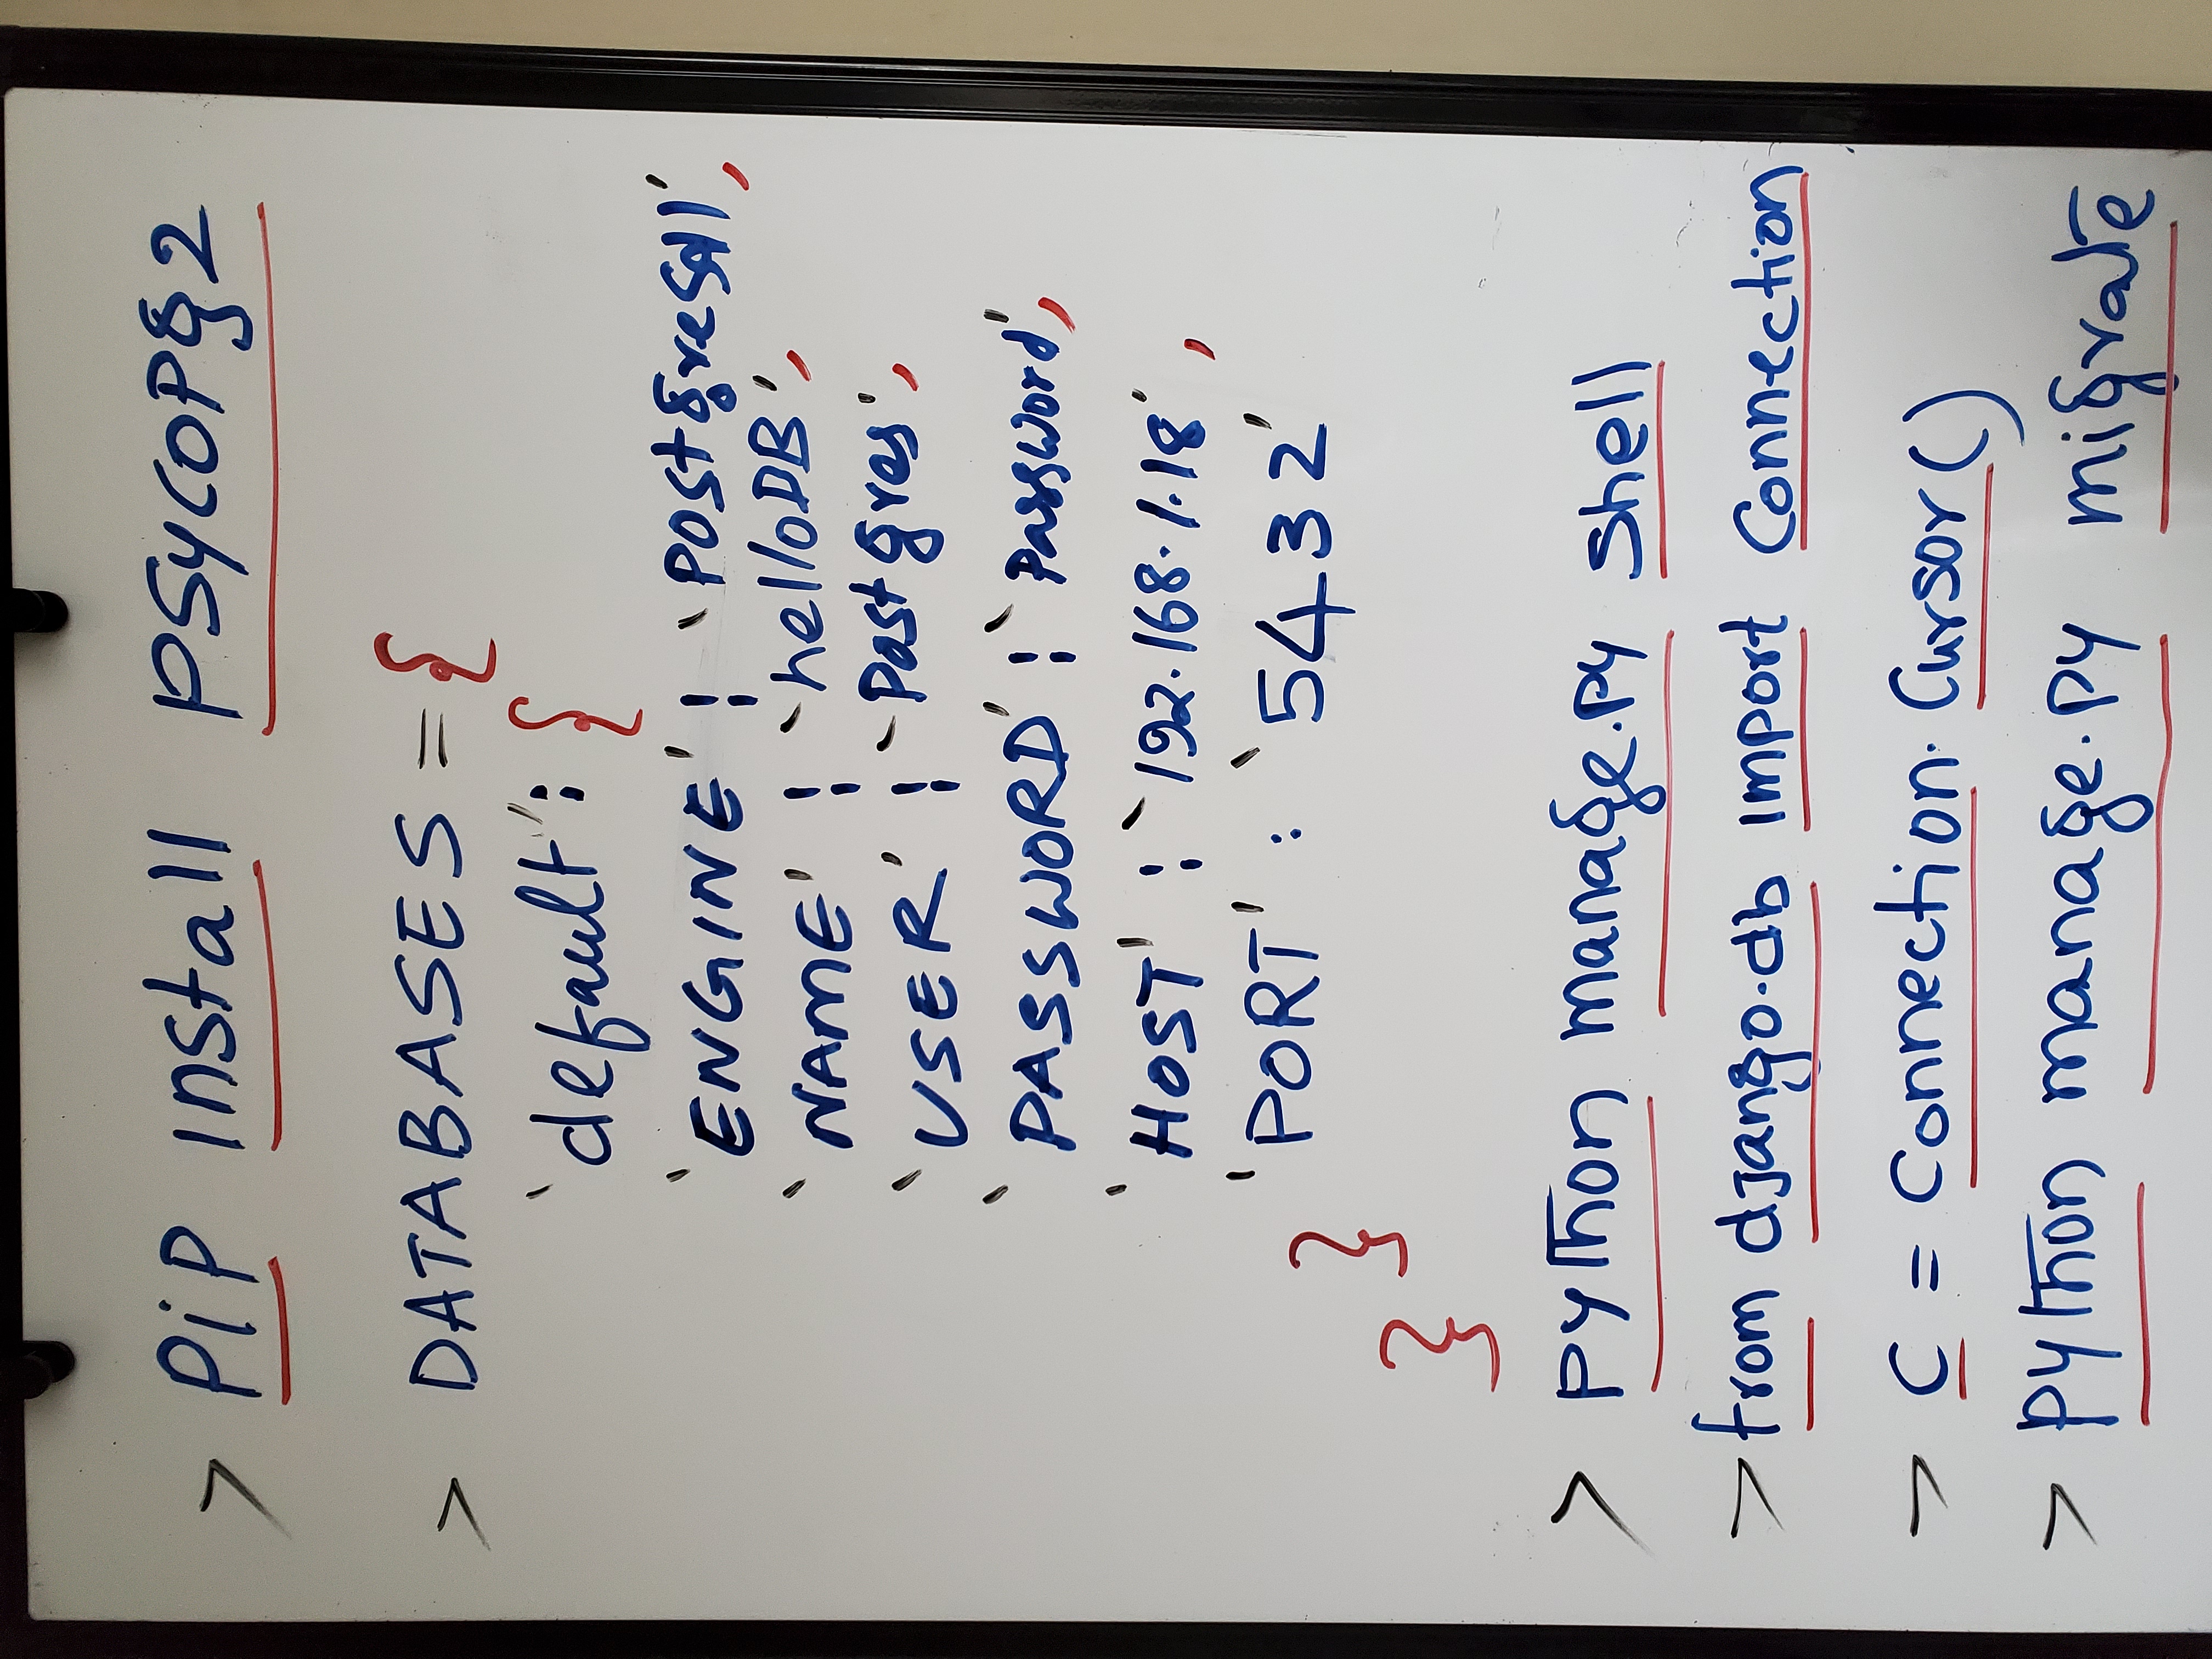 > pip install psycopg2
> DATABASES = {
'default': {
'ENGINE' : 'postgresqll',
'NAME' : 'helloDB',
'USER' : 'postgres',
'PASSWORD' : 'password',
'HOST' : '192.168.1.18',
'PORT' : '5432'
}
}
> python manage.py shell
> from django.db import connection
> c = connection.cursor()
> python manage.py migrate